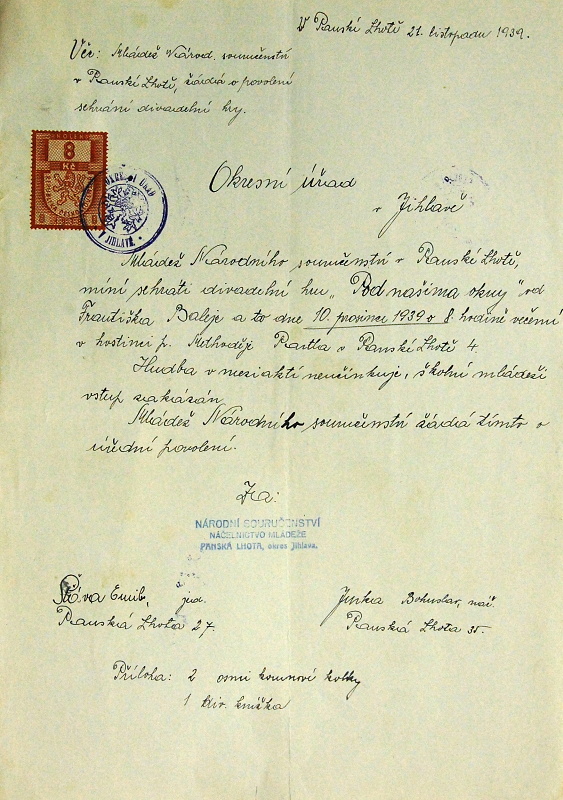 V Panské Lhotě 21. listopadu 1939.
Věc: Mládež Národ. souručenství
v Panské Lhotě, žádá o povolení
sehrání divadelní hry.
8
Kč
8 8
Okresní úřad
v Jihlavě
V JIHLAVĚ
Mládež Národního souručenství v Panské Lhotě,
míní sehráti divadelní hru „Pod našima okny" od
Františka Baleje a to dne 10. prosince 1939 o 8. hodině večerní
v hostinci p. Methoděje Partla v Panské Lhotě 4.
Hudba v meziaktí neučinkuje, školní mládeži
vstup zakázán.
Mládež Národního souručenství žádá tímto o
úřední povolení.
Za:
NÁRODNÍ SOURUČENSTVÍ
NÁČELNICTVO MLÁDEŽE
PANSKÁ LHOTA, okres Jihlava.
Emil, jed.
Panská Lhota 27.
Bohuslav, nář.
Panská Lhota 35.
Příloha: 2 osmi korunové kolky
1 div. knížka